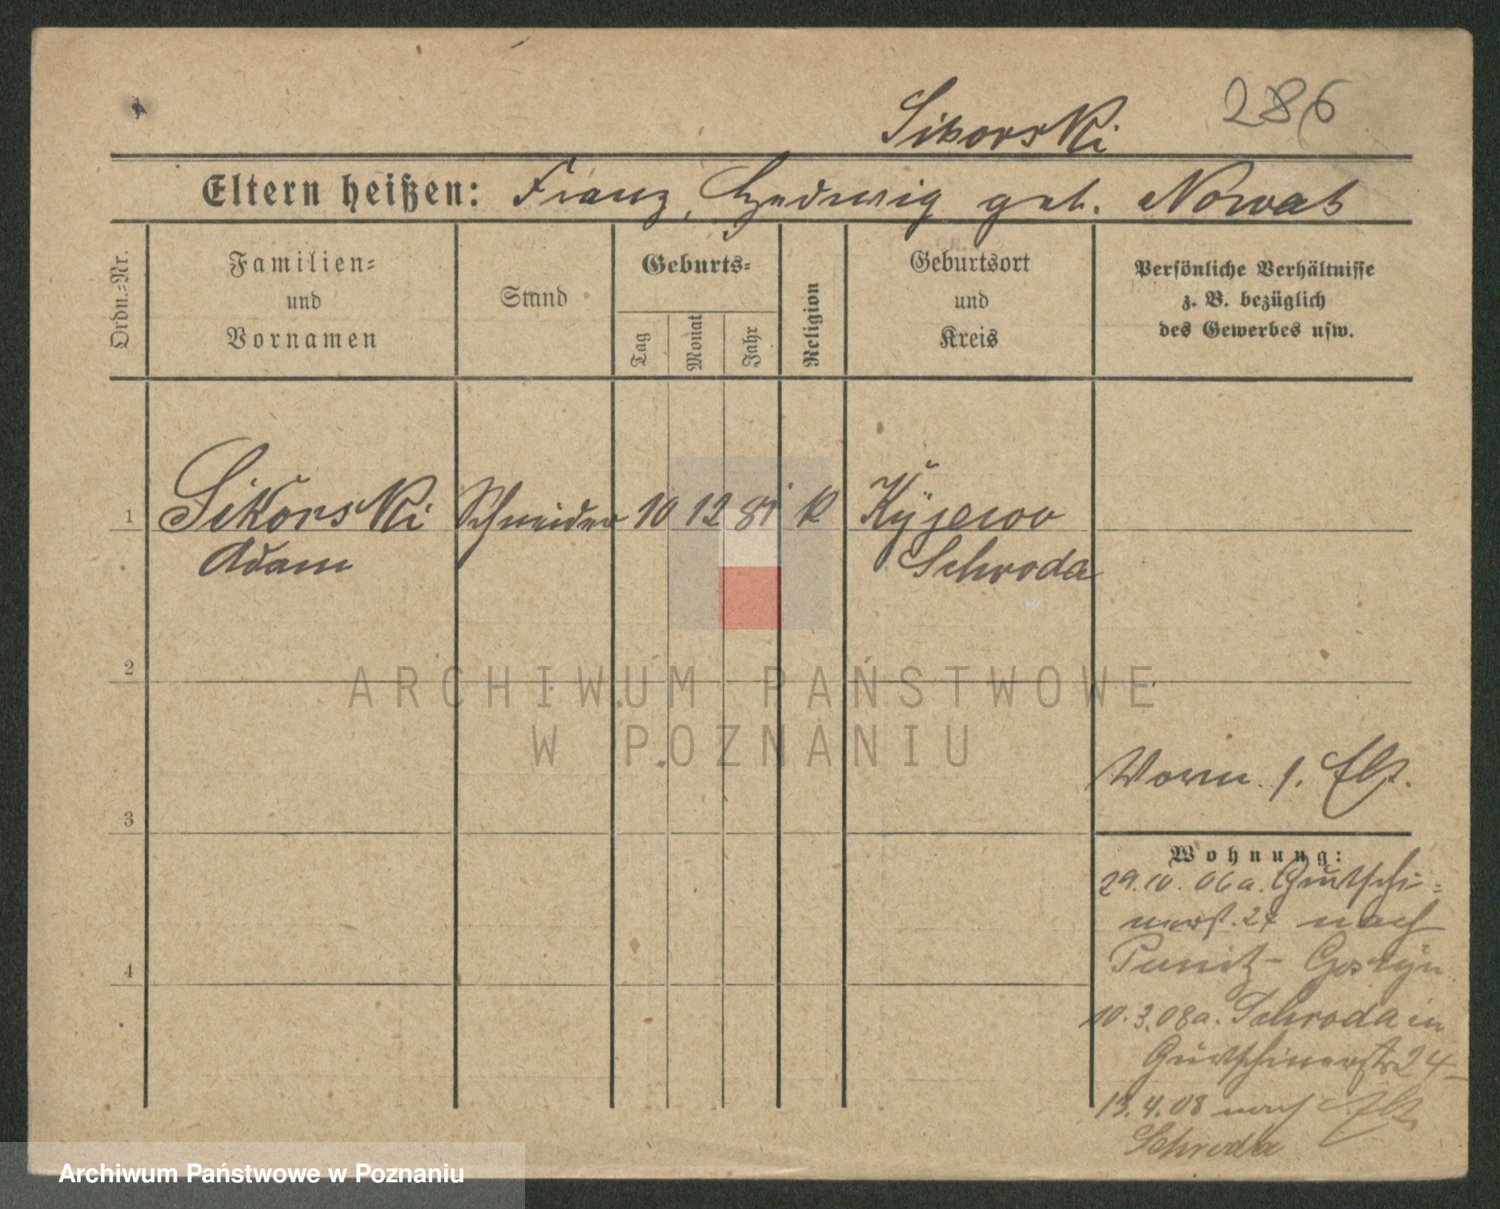 Sikorski 286
Eltern heißen: Franz, Hedwig geb. Nowak
Ordn.-Nr.
Familien-
und
Vornamen
Stand
Geburts-
Tag
Monat
Jahr
Religion
Geburtsort
und
Kreis
Persönliche Verhältnisse
z. B. bezüglich
des Gewerbes usw.
1 Sikorski Schneider 10 12 81 k Kijewo
Adam Schroda
2
ARCHIWUM PAŃSTWOWE
W POZNANIU
Vorm. 1.
3
Wohnung:
29.10.06 a. Gurtschi-
nerst. 24 nach
Punitz - Gostyn
10.3.08 a. Schroda in
Gurtschinerstr 24
13.4.08 nach
Schroda
4
Archiwum Państwowe w Poznaniu